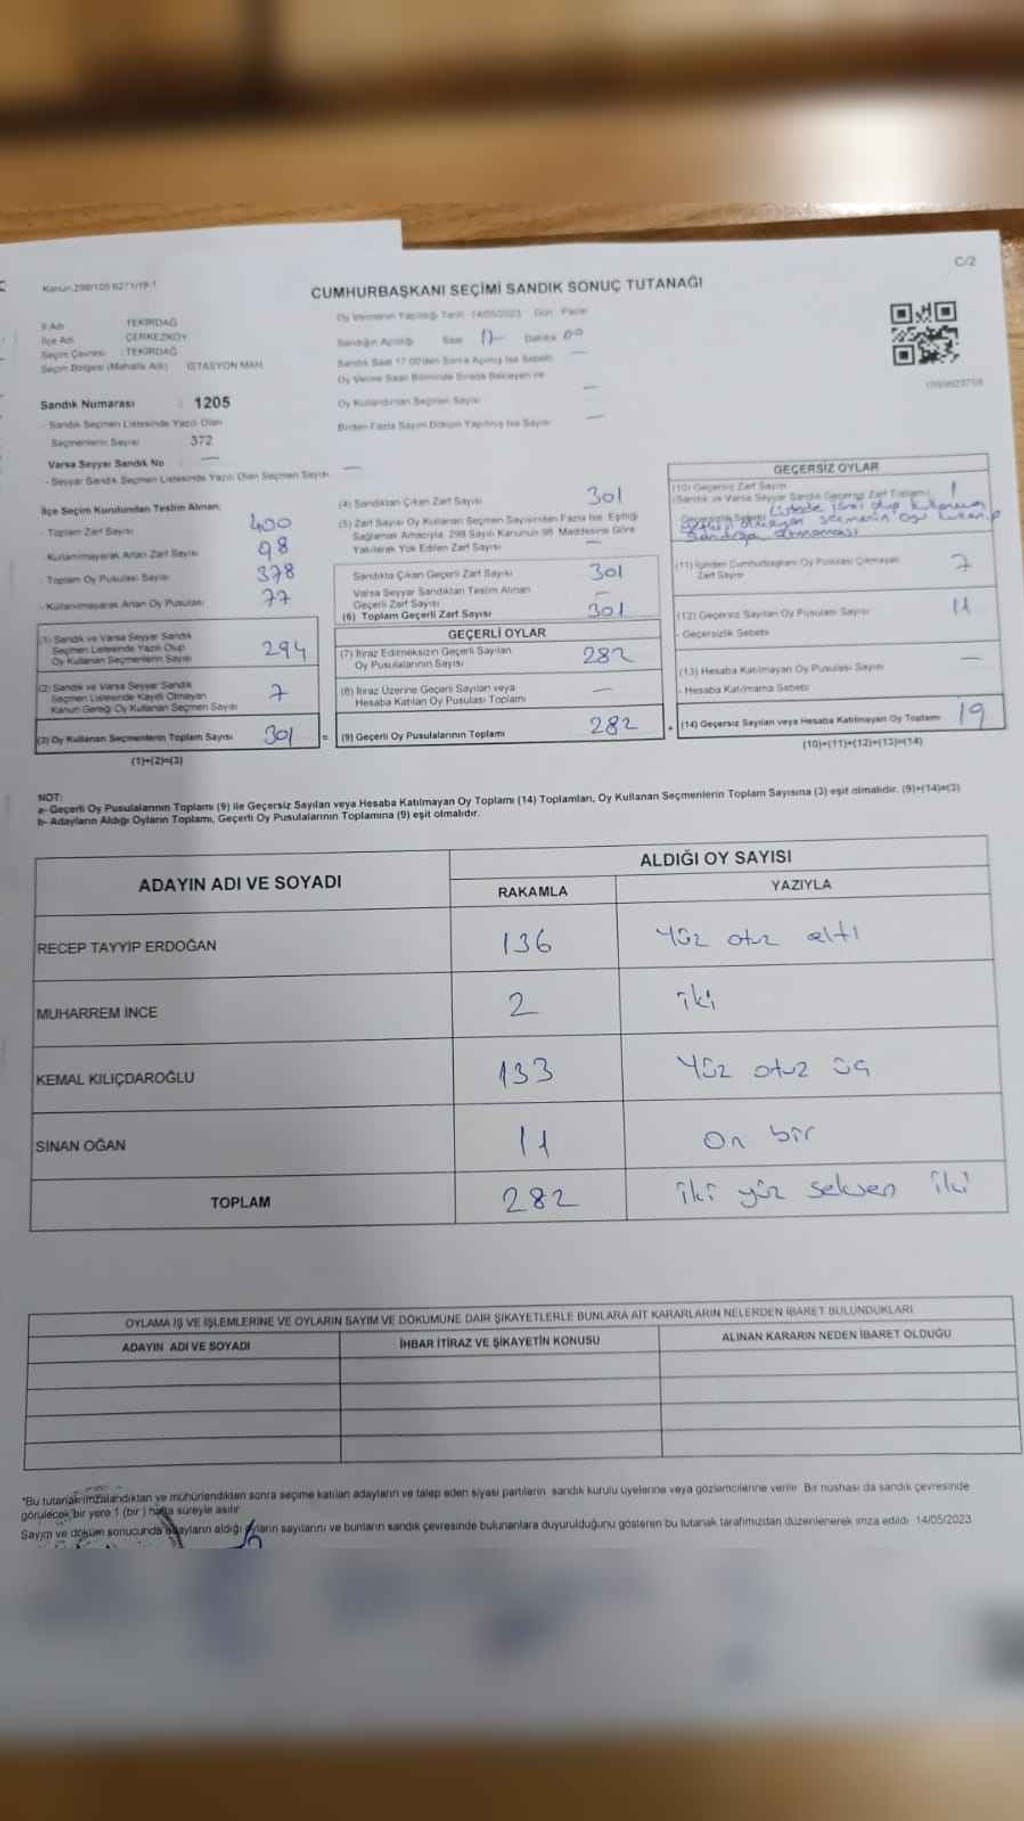 C/2
CUMHURBAŞKANI SEÇİMİ SANDIK SONUÇ TUTANAĞI
İl Adı TEKİRDAĞ
İlçe Adı ÇERKEZKÖY
Seçim Çevresi : TEKİRDAĞ
Seçim Bölgesi (Mahalle Adı) İSTASYON MAH.
Sandık Numarası : 1205
- Sandık Seçmen Listesinde Yazılı Olan
Seçmenlerin Sayısı 372
Varsa Seyyar Sandık No —
- Seyyar Sandık Seçmen Listesinde Yazılı Olan Seçmen Sayısı —
Oy Vermenin Yapıldığı Tarih : 14/05/2023 Gün : Pazar
Sandığın Açıldığı Saat 17 Dakika 00
Sandık Saat 17.00'den Sonra Açılmış İse Sebebi —
Oy Verme Saati Bitiminde Sırada Bekleyen ve
Oy Kullandırılan Seçmen Sayısı —
Birden Fazla Sayım Döküm Yapılmış İse Sayısı —
İlçe Seçim Kurulundan Teslim Alınan;
- Toplam Zarf Sayısı 400
Kullanılmayarak Artan Zarf Sayısı 98
- Toplam Oy Pusulası Sayısı 378
- Kullanılmayarak Artan Oy Pusulası 77
(1) Sandık ve Varsa Seyyar Sandık
Seçmen Listesinde Yazılı Olup
Oy Kullanan Seçmenlerin Sayısı 294
(2) Sandık ve Varsa Seyyar Sandık
Seçmen Listesinde Kayıtlı Olmayan
Kanun Gereği Oy Kullanan Seçmen Sayısı 7
(3) Oy Kullanan Seçmenlerin Toplam Sayısı 301
(1)+(2)=(3)
(4) Sandıktan Çıkan Zarf Sayısı 301
(5) Zarf Sayısı Oy Kullanan Seçmen Sayısından Fazla İse, Eşitliği
Sağlamak Amacıyla, 298 Sayılı Kanunun 98. Maddesine Göre
Yakılarak Yok Edilen Zarf Sayısı —
Sandıkta Çıkan Geçerli Zarf Sayısı 301
Varsa Seyyar Sandıktan Teslim Alınan
Geçerli Zarf Sayısı —
(6) Toplam Geçerli Zarf Sayısı 301
GEÇERLİ OYLAR
(7) İtiraz Edilmeksizin Geçerli Sayılan
Oy Pusulalarının Sayısı 282
(8) İtiraz Üzerine Geçerli Sayılan veya
Hesaba Katılan Oy Pusulası Toplamı —
= (9) Geçerli Oy Pusulalarının Toplamı 282
GEÇERSİZ OYLAR
(10) Geçersiz Zarf Sayısı
(Sandık ve Varsa Seyyar Sandık Geçersiz Zarf Toplamı) 1
Listede ismi olup
seçmenin oyu
(11) İçinden Cumhurbaşkanı Oy Pusulası Çıkmayan
Zarf Sayısı 7
(12) Geçersiz Sayılan Oy Pusulası Sayısı 11
- Geçersizlik Sebebi
(13) Hesaba Katılmayan Oy Pusulası Sayısı —
- Hesaba Katılmama Sebebi
+ (14) Geçersiz Sayılan veya Hesaba Katılmayan Oy Toplamı 19
(10)+(11)+(12)+(13)=(14)
NOT:
a- Geçerli Oy Pusulalarının Toplamı (9) ile Geçersiz Sayılan veya Hesaba Katılmayan Oy Toplamı (14) Toplamları, Oy Kullanan Seçmenlerin Toplam Sayısına (3) eşit olmalıdır. (9)+(14)=(3)
b- Adayların Aldığı Oyların Toplamı, Geçerli Oy Pusulalarının Toplamına (9) eşit olmalıdır.
ADAYIN ADI VE SOYADI ALDIĞI OY SAYISI
RAKAMLA YAZIYLA
RECEP TAYYİP ERDOĞAN 136 Yüz otuz altı
MUHARREM İNCE 2 iki
KEMAL KILIÇDAROĞLU 133 Yüz otuz üç
SİNAN OĞAN 11 On bir
TOPLAM 282 iki yüz seksen iki
OYLAMA İŞ VE İŞLEMLERİNE VE OYLARIN SAYIM VE DÖKÜMÜNE DAİR ŞİKAYETLERLE BUNLARA AİT KARARLARIN NELERDEN İBARET BULUNDUKLARI
ADAYIN ADI VE SOYADI İHBAR İTİRAZ VE ŞİKAYETİN KONUSU ALINAN KARARIN NEDEN İBARET OLDUĞU
*Bu tutanak imzalandıktan ve mühürlendikten sonra seçime katılan adayların ve talep eden siyasi partilerin sandık kurulu üyelerine veya gözlemcilerine verilir. Bir nüshası da sandık çevresinde
görülecek bir yere 1 (bir) hafta süreyle asılır.
Sayım ve döküm sonucunda adayların aldığı oyların sayılarını ve bunların sandık çevresinde bulunanlara duyurulduğunu gösteren bu tutanak tarafımızdan düzenlenerek imza edildi. 14/05/2023